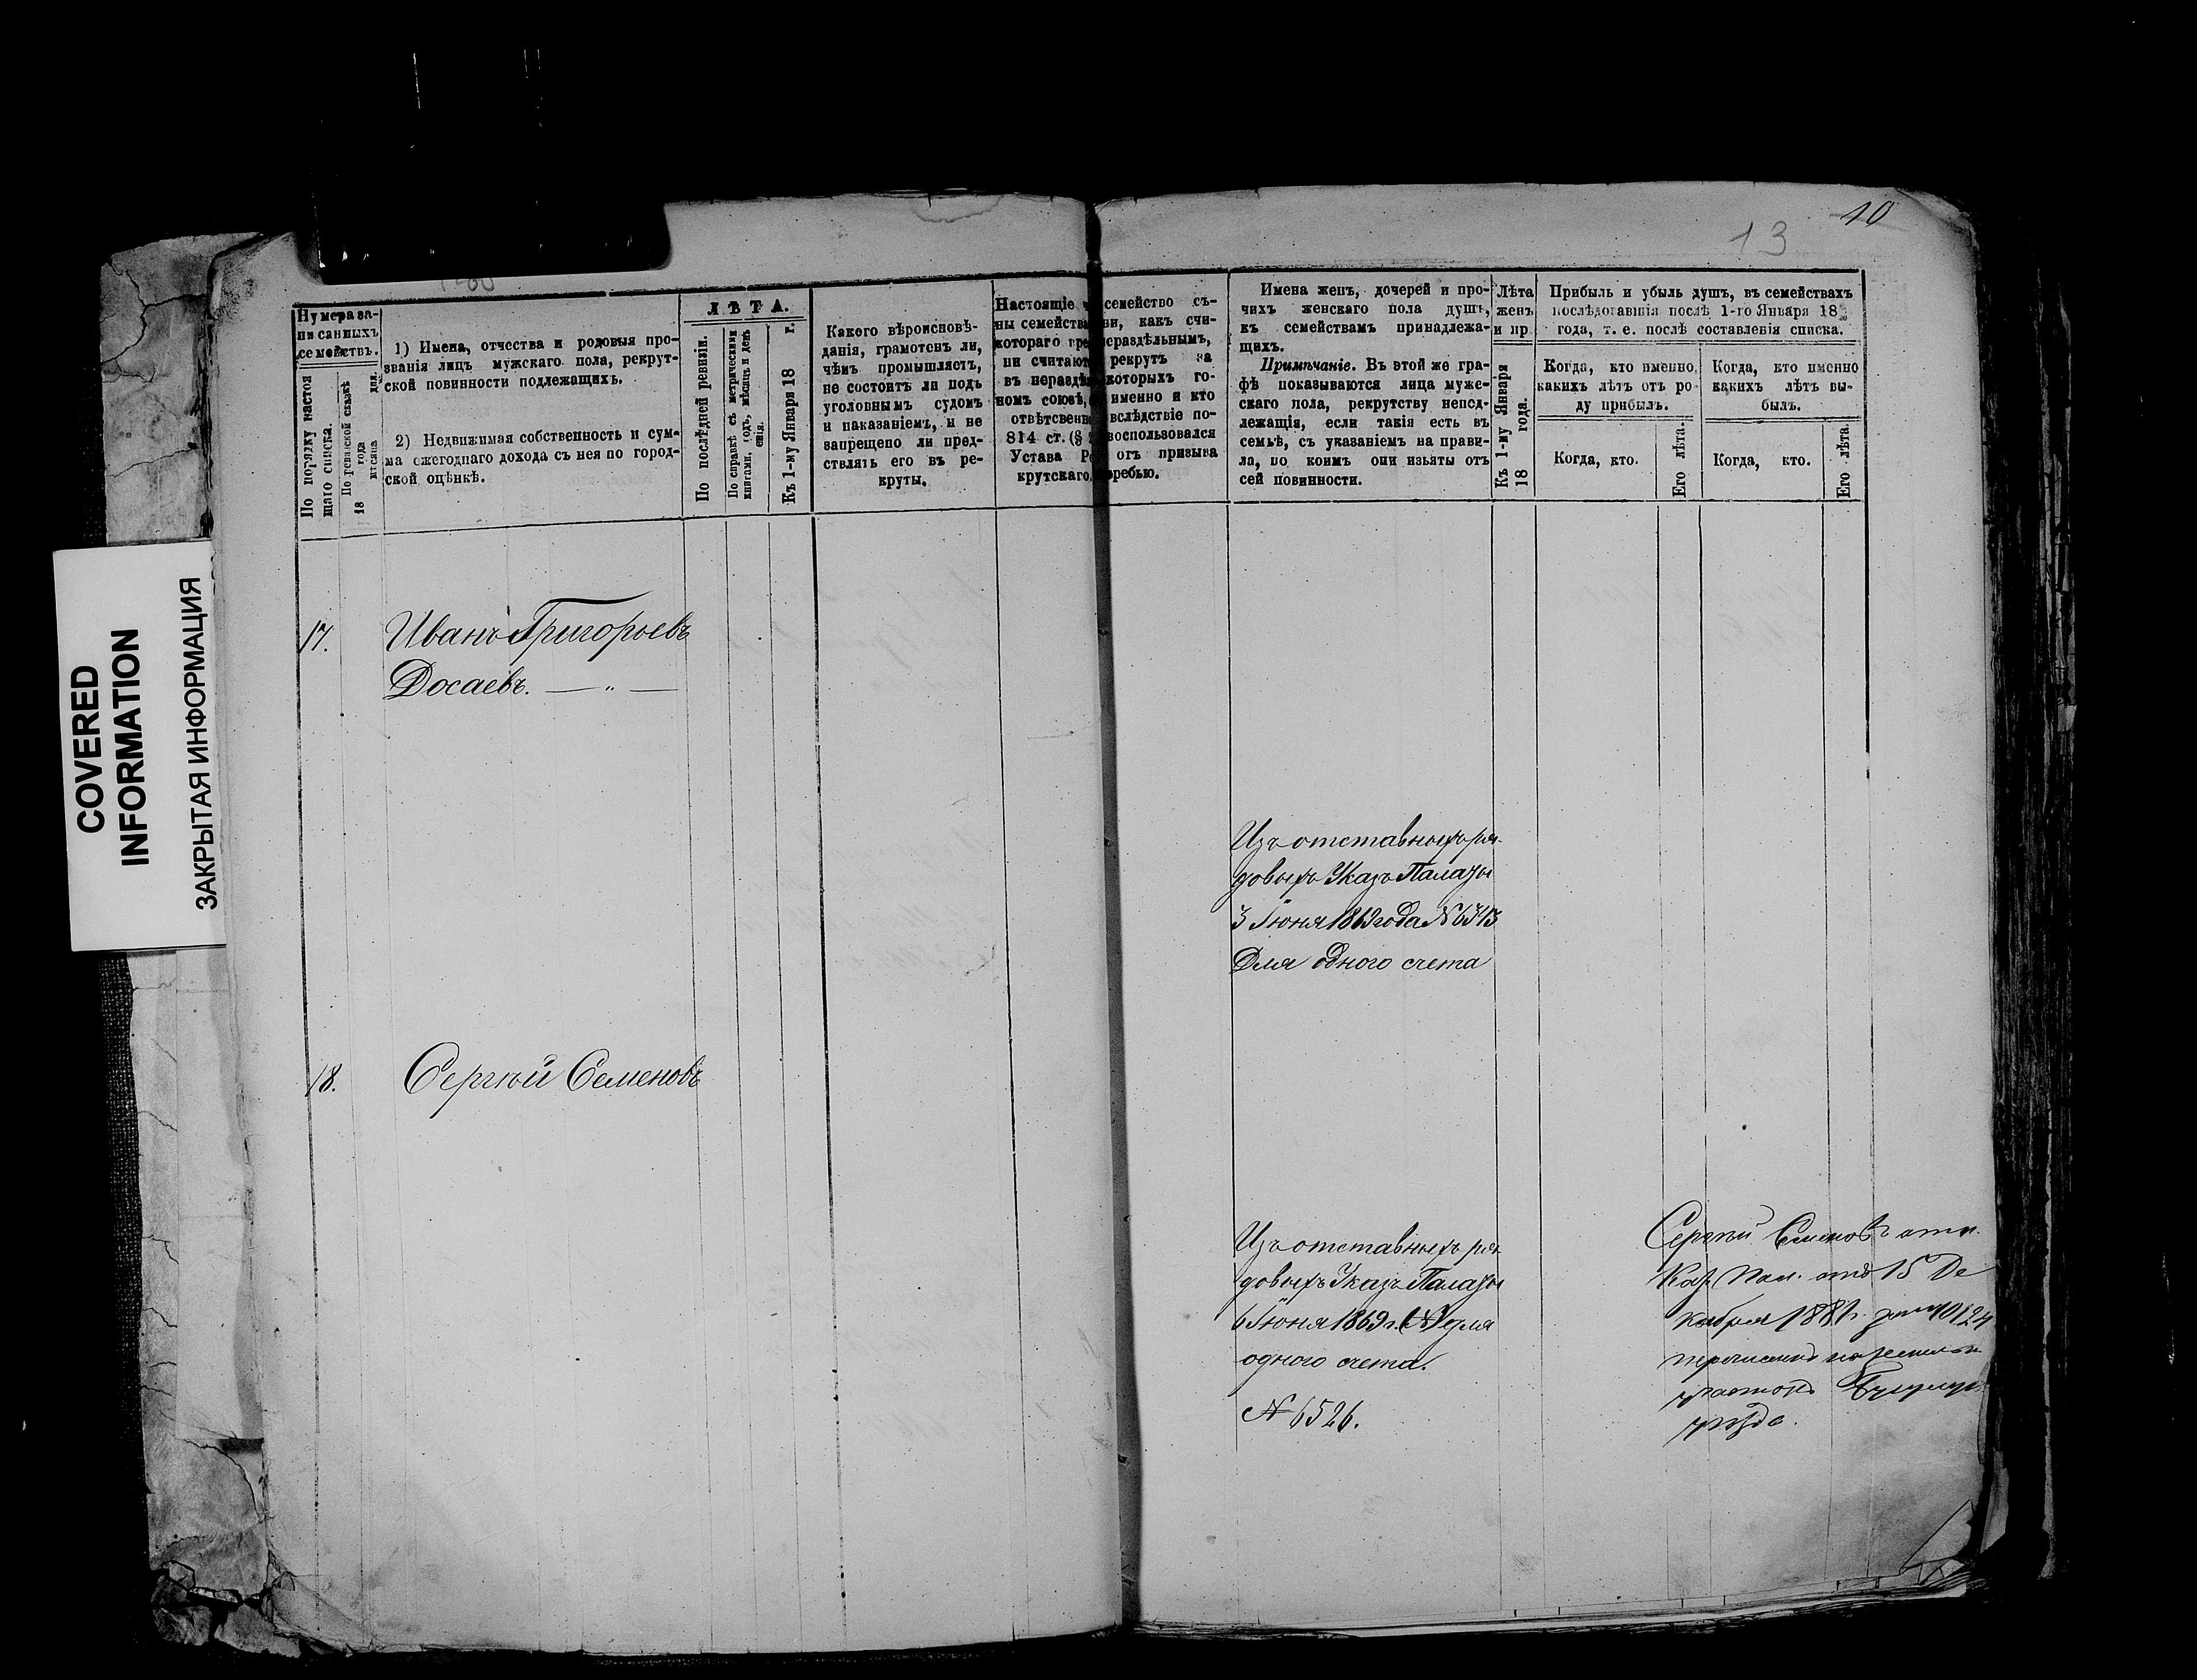 10
13
COVERED
INFORMATION
ЗАКРЫТАЯ ИНФОРМАЦИЯ
Нумера за-
писанныхъ
семействъ.
По порядку настоя
щаго списка.
По ревизской сказкѣ
18 года
мѣсяца дня.
1) Имена, отчества и родовыя про-
званія лицъ мужскаго пола, рекрут-
ской повинности подлежащихъ.
2) Недвижимая собственность и сум-
ма ежегоднаго дохода съ нея по город-
ской оцѣнкѣ.
ЛѢТА.
По послѣдней ревизіи.
По справкѣ съ метрическими
книгами, годъ, мѣсяцъ и день
Къ 1-му Января 18 г.
Какого вѣроисновѣ-
данія, грамотенъ ли,
чѣмъ промышляетъ,
не состоитъ ли подъ
уголовнымъ судомъ
и наказаніемъ, и не
запрещено ли пред-
ствлять его въ ре-
круты.
Настоящіе
ны семейств
котораго
ни считают
въ неразд
номъ союзѣ,
отвѣтсвенн
814 ст. (§
Устава Р
крутскаго
семейство съ-
ни, какъ счи-
ераздѣльнымъ,
рекрутъ за
которыхъ го-
именно и кто
вслѣдствіе по-
воспользовался
отъ призыва
ребью.
Имена женъ, дочерей и про-
чихъ женскаго пола душъ,
къ семействамъ принадлежа-
щихъ.
Примѣчаніе. Въ этой же гра-
фѣ показываются лица муже-
скаго пола, рекрутству непод-
лежащія, если такія есть въ
семьѣ, съ указаніемъ на прави-
ла, по коимъ они изьяты отъ
сей повинности.
Лѣта
женъ
и пр
Къ 1-му Января
18 года.
Прибыль и убыль душъ, въ семействахъ
послѣдовавшія послѣ 1-го Января 18
года, т. е. послѣ составленія списка.
Когда, кто именно,
какихъ лѣтъ отъ ро-
ду прибылъ.
Когда, кто.
Его лѣта.
Когда, кто именно
какихъ лѣтъ вы-
былъ.
Когда, кто.
Его лѣта.
17.
Иванъ Григорьевъ
Досаевъ. — „ —
Изъ отставныхъ ря-
довыхъ Указъ Палаты
3 Июня 1869 года № 6343
Для одного счета
18.
Сергѣй Семеновъ
Изъ отставныхъ ря
довыхъ Указъ Палаты
6 Июня 1869 г. (№) для
одного счета.
№ 6526.
Сергѣй Семеновъ
Каз. Пал. отъ 15 Де
кабря 1881 г. 10124
уѣзда.